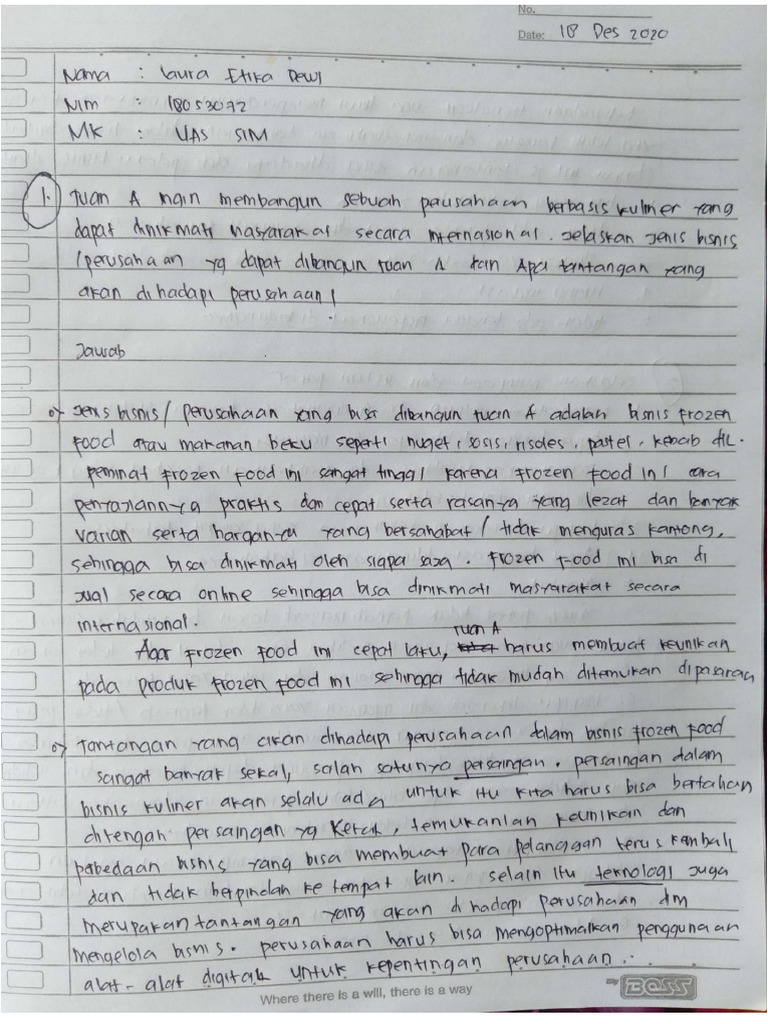 No.
Date: 18 Des 2020
Nama : Laura Etika Dewi
Nim : 18053072
MK : UAS SIM
1. Tuan A ingin membangun sebuah perusahaan berbasis kuliner yang
dapat dinikmati masyarakat secara internasional. Jelaskan jenis bisnis
/perusahaan yg dapat dibangun tuan A dan Apa tantangan yang
akan dihadapi perusahaan!
Jawab
Jenis bisnis/ perusahaan yang bisa dibangun tuan A adalah bisnis frozen
food atau makanan beku seperti nuget, sosis, risoles, pastel, kebab dll.
peminat frozen food ini sangat tinggi karena frozen food ini cara
penyajiannya praktis dan cepat serta rasanya yang lezat dan banyak
varian serta harganya yang bersahabat / tidak menguras kantong,
sehingga bisa dinikmati oleh siapa saja. frozen food ini bisa di
jual secara online sehingga bisa dinikmati masyarakat secara
internasional.
Agar frozen food ini cepat laku, Tuan A harus membuat keunikan
pada produk frozen food ini sehingga tidak mudah ditemukan dipasaran
Tantangan yang akan dihadapi perusahaan dalam bisnis frozen food
sangat banyak sekali, salah satunya persaingan. persaingan dalam
bisnis kuliner akan selalu ada untuk itu kita harus bisa bertahan
ditengah persaingan yg Ketak, temukanlah keunikan dan
pabedaan bisnis yang bisa membuat para pelanggan terus kembali
dan tidak berpindah ke tempat lain. selain itu teknologi juga
merupakan tantangan yang akan dihadapi perusahaan dlm
mengelola bisnis. perusahaan harus bisa mengoptimalkan penggunaan
alat-alat digital untuk kepentingan perusahaan.
Where there is a will, there is a way
by BOSS